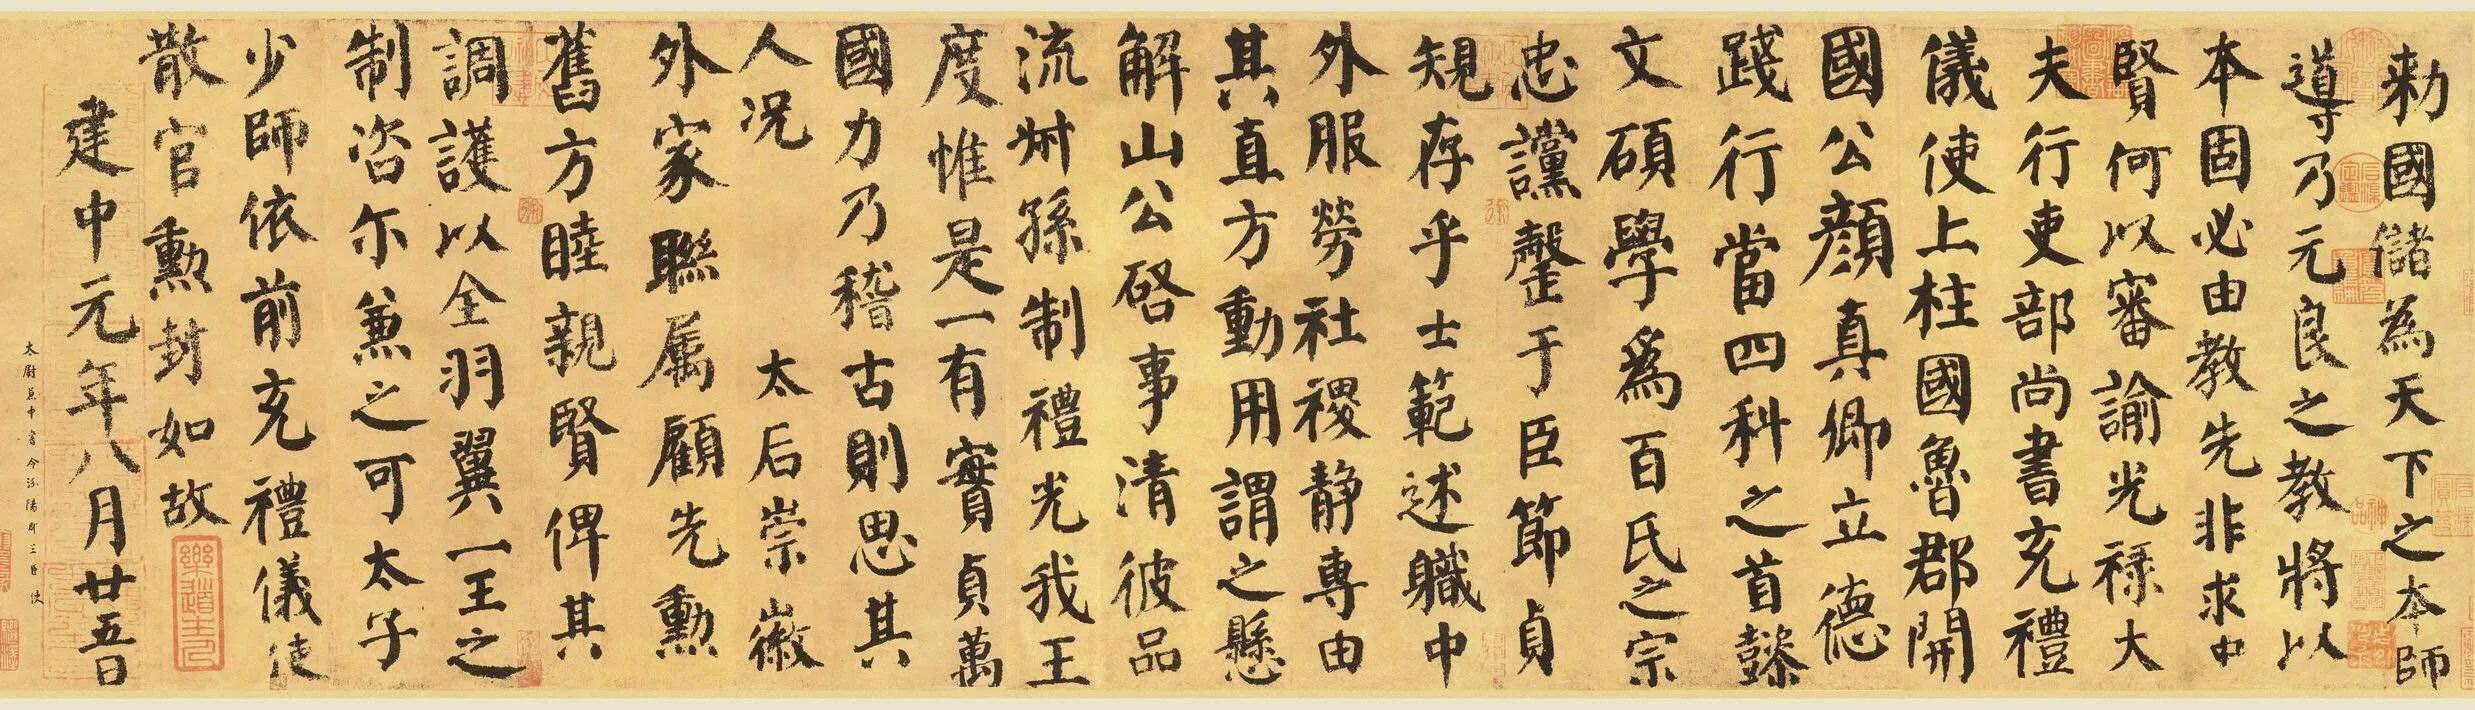 勅國儲為天下之本師
導乃元良之教將以
本固必由教先非求中
賢何以審諭光祿大
夫行吏部尚書充禮
儀使上柱國魯郡開
國公顏真卿立德
踐行當四科之首懿
文碩學爲百氏之宗
忠讜罄于臣節貞
規存乎士範述職中
外服勞社稷靜專由
其直方動用謂之懸
解山公啓事清彼品
流叔孫制禮光我王
度惟是一有實貞萬
國力乃稽古則思其
人況 太后崇徽
外家聯屬顧先勳
舊方睦親賢俾其
調護以全羽翼一王之
制咨尔兼之可太子
少師依前充禮儀使
散官勳封如故
建中元年八月廿五日
太尉兼中書令汾陽郡王臣使
樂道主人